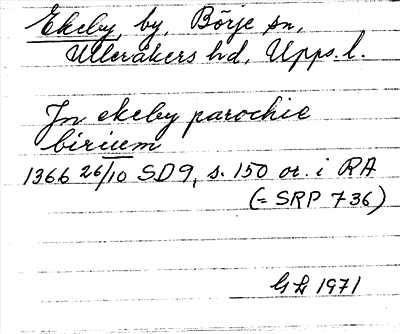 Ekeby, by, Börje sn,
Ulleråkers hd, Upps. l.
Jn ekeby parochie
birium
1366 26/10 SD9, s. 150 or. i RA
(= SRP 736)
GL 1971